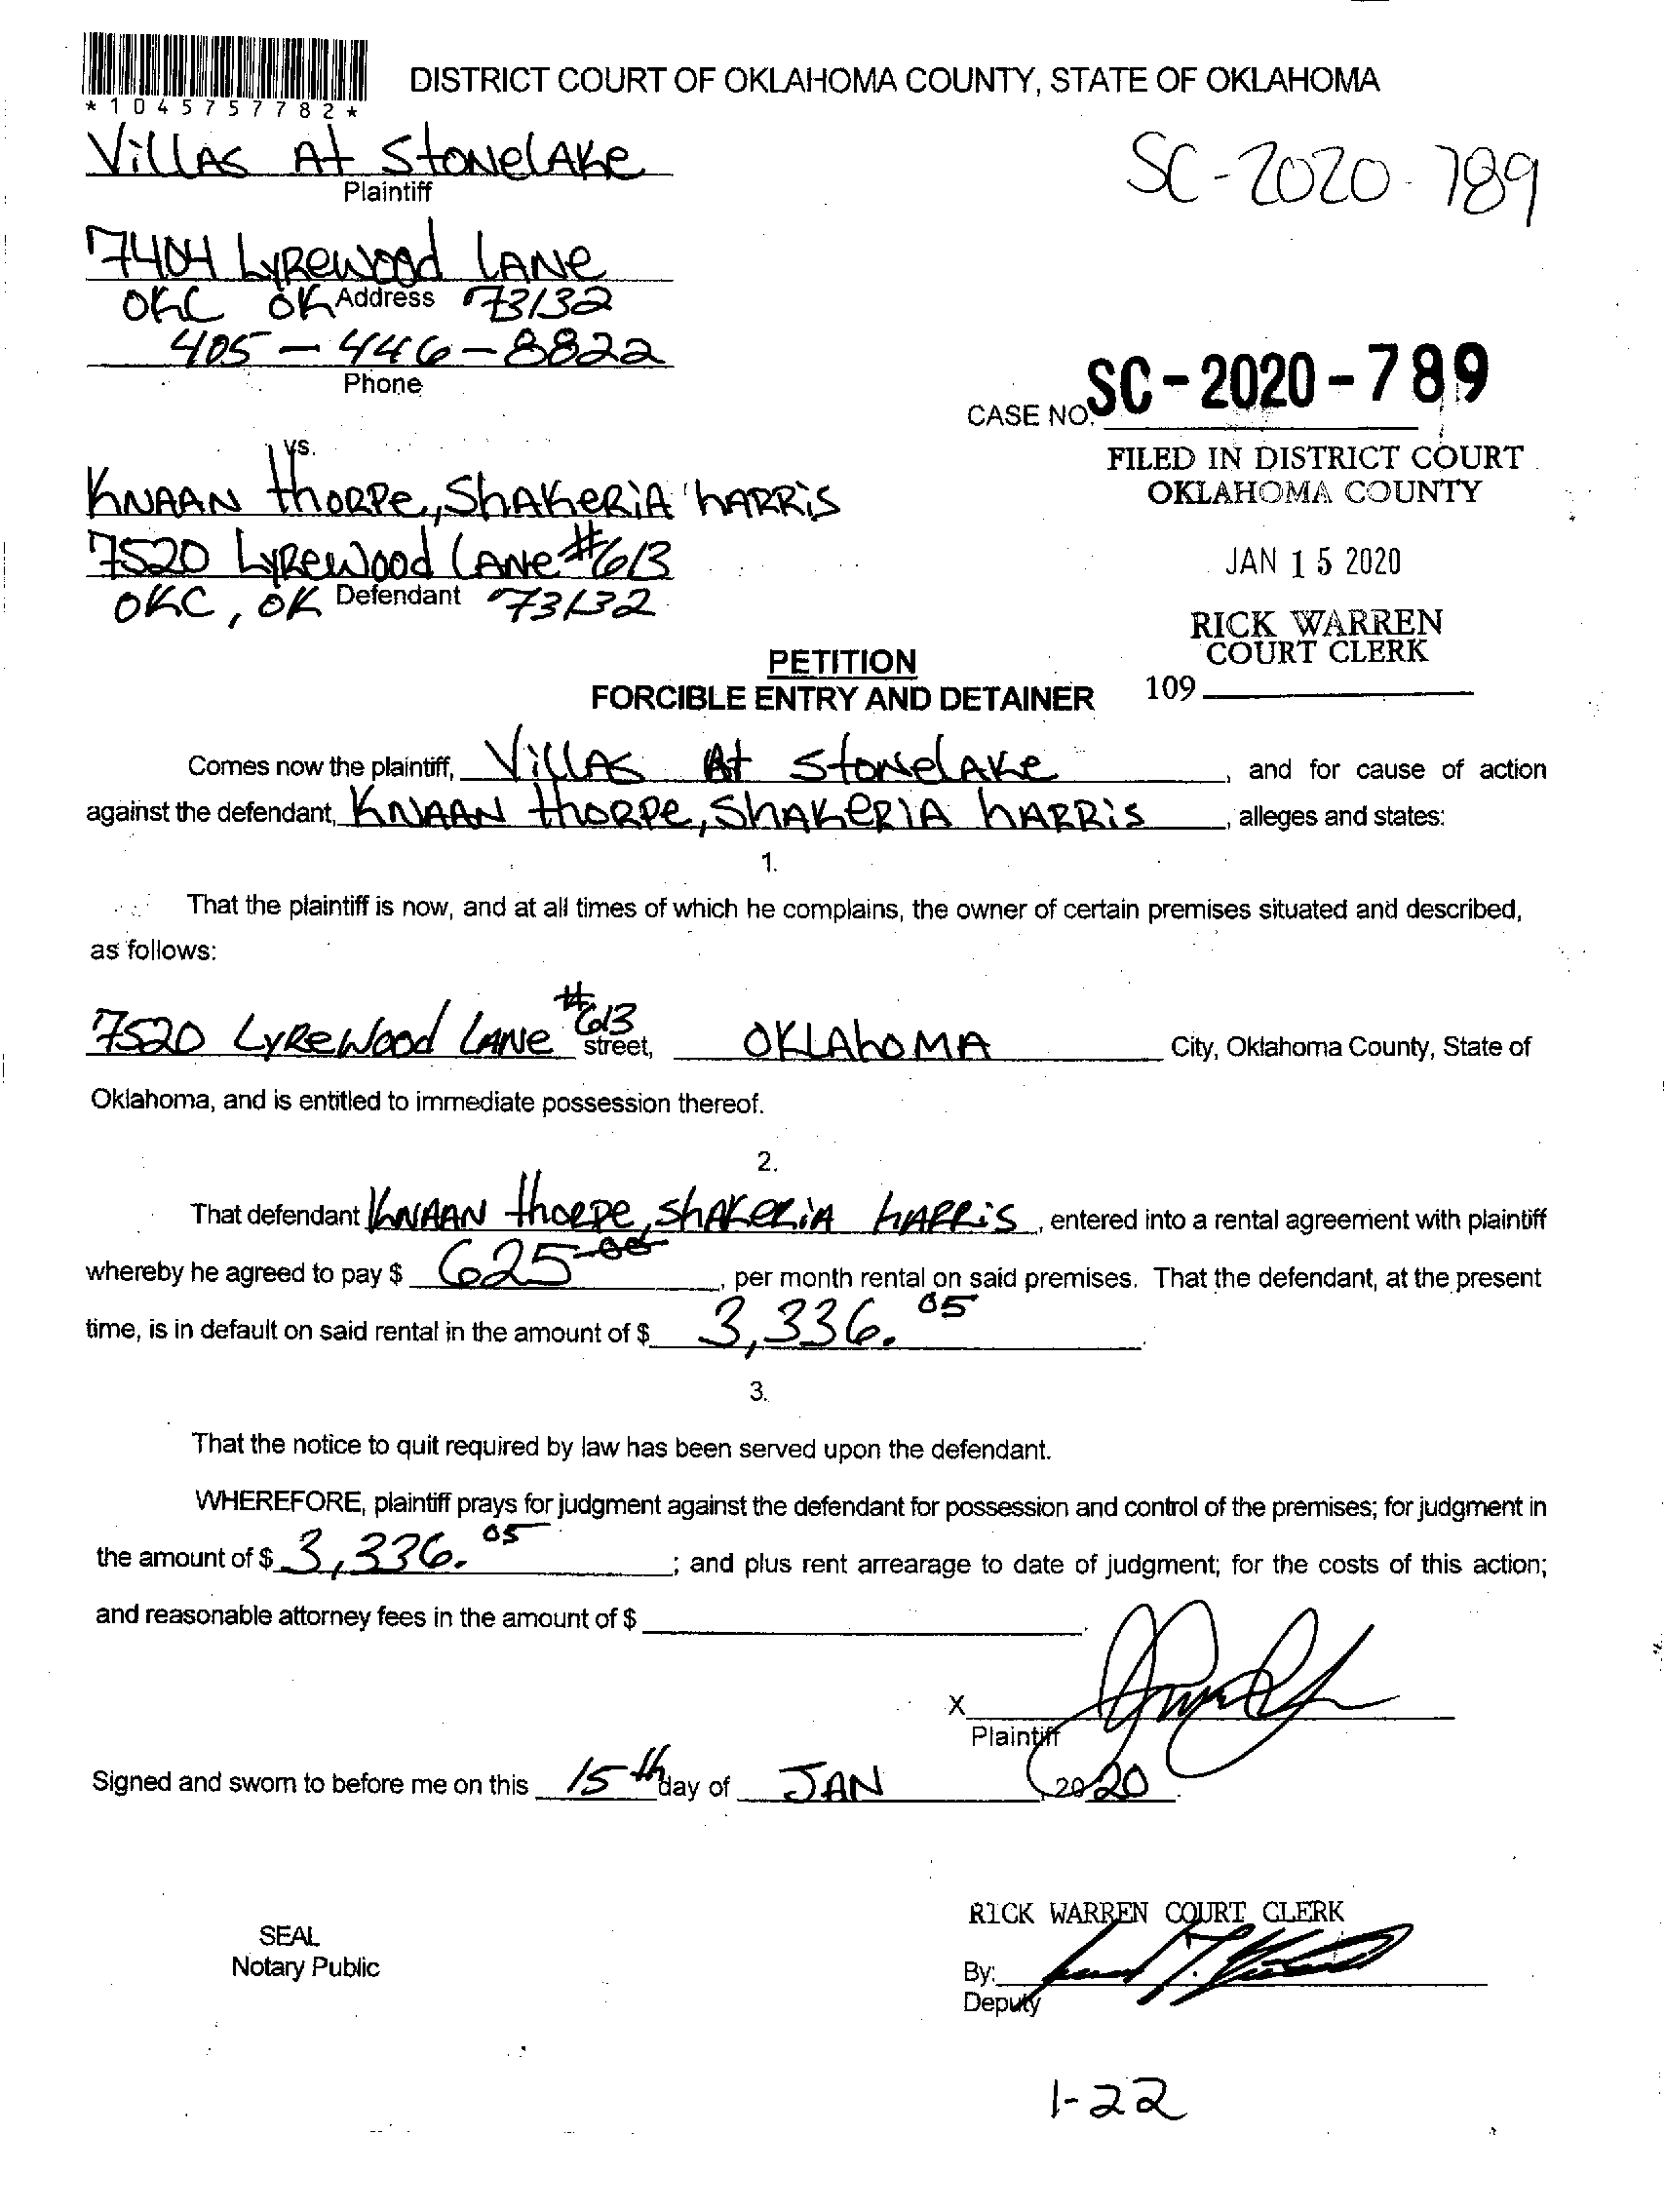 *1045757782*
DISTRICT COURT OF OKLAHOMA COUNTY, STATE OF OKLAHOMA
Villas At Stonelake
Plaintiff
SC-2020-789
7404 Lyrewood Lane
Address
OKC OK 73132
405-446-8822
Phone
CASE NO. SC-2020-789
vs.
FILED IN DISTRICT COURT
OKLAHOMA COUNTY
Knaan Thorpe, Shakeria Harris
7520 Lyrewood Lane #613
JAN 15 2020
OKC, OK 73132
Defendant
RICK WARREN
COURT CLERK
109
PETITION
FORCIBLE ENTRY AND DETAINER
Comes now the plaintiff, Villas At Stonelake, and for cause of action
against the defendant, Knaan Thorpe, Shakeria Harris, alleges and states:
1.
That the plaintiff is now, and at all times of which he complains, the owner of certain premises situated and described,
as follows:
7520 Lyrewood Lane #613 street, Oklahoma City, Oklahoma County, State of
Oklahoma, and is entitled to immediate possession thereof.
2.
That defendant Knaan Thorpe, Shakeria Harris, entered into a rental agreement with plaintiff
whereby he agreed to pay $ 625.00, per month rental on said premises. That the defendant, at the present
time, is in default on said rental in the amount of $ 3,336.05.
3.
That the notice to quit required by law has been served upon the defendant.
WHEREFORE, plaintiff prays for judgment against the defendant for possession and control of the premises; for judgment in
the amount of $ 3,336.05; and plus rent arrearage to date of judgment; for the costs of this action;
and reasonable attorney fees in the amount of $
X
Plaintiff
Signed and sworn to before me on this 15th day of JAN, 2020.
SEAL
Notary Public
RICK WARREN COURT CLERK
By:
Deputy
1-22